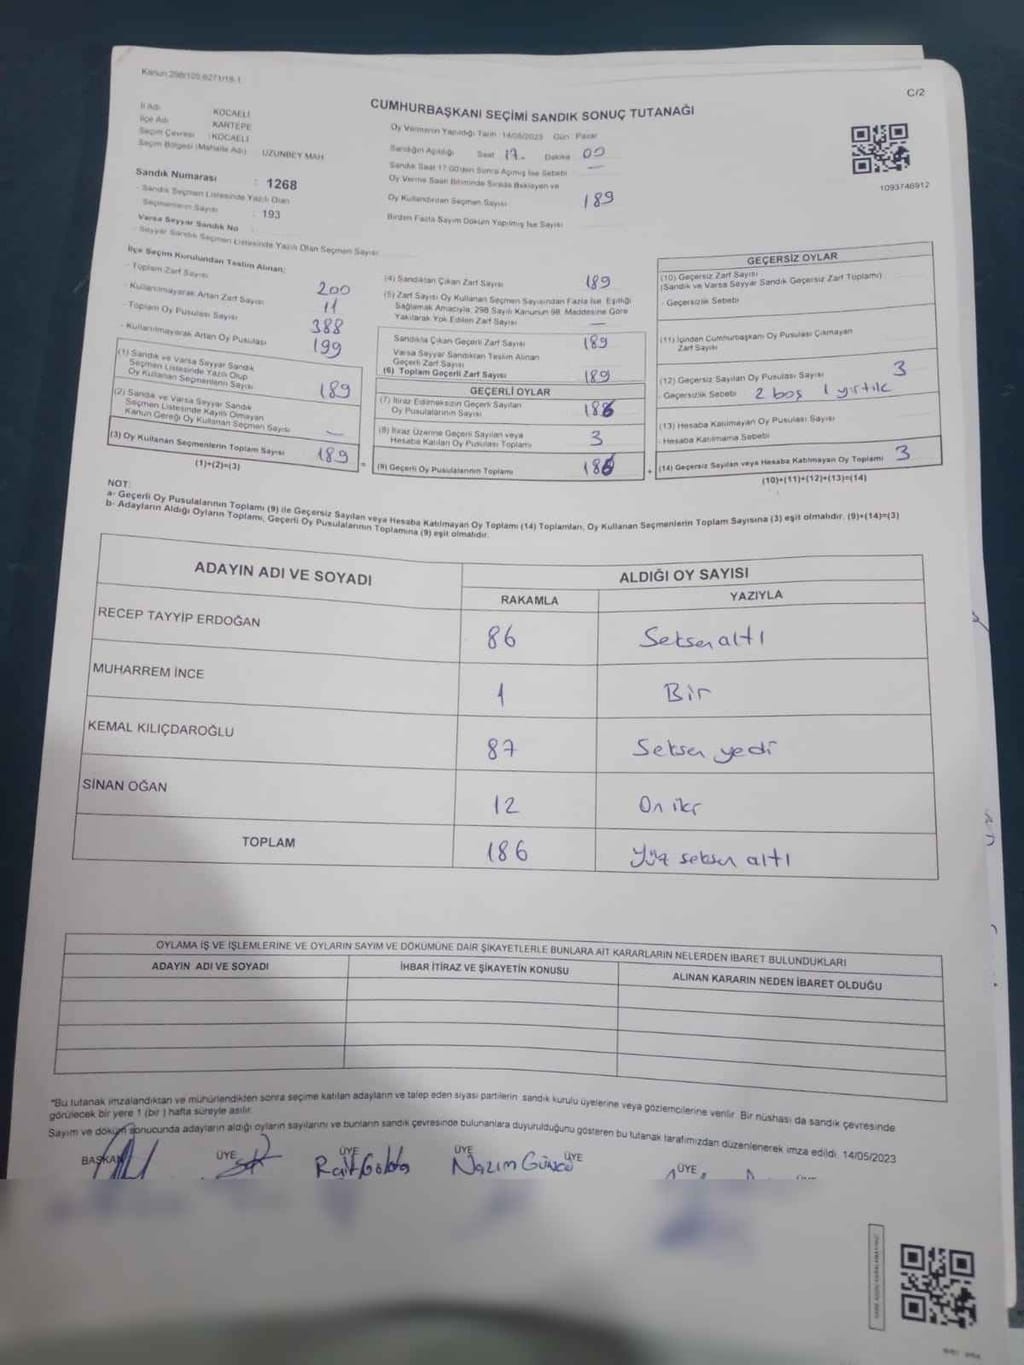 Kanun 298/105 6271/18-1
C/2
CUMHURBAŞKANI SEÇİMİ SANDIK SONUÇ TUTANAĞI
İl Adı KOCAELİ
İlçe Adı KARTEPE
Seçim Çevresi KOCAELİ
Seçim Bölgesi (Mahalle Adı) UZUNBEY MAH.
Oy Vermenin Yapıldığı Tarih 14/05/2023 Gün Pazar
Sandığın Açıldığı Saat 17. Dakika 00
Sandık Saat 17:00'den Sonra Açılmış İse Sebebi —
Oy Verme Saati Bitiminde Sırada Bekleyen ve
Oy Kullandırılan Seçmen Sayısı 189
Birden Fazla Sayım Döküm Yapılmış İse Sayısı
1093746912
Sandık Numarası : 1268
- Sandık Seçmen Listesinde Yazılı Olan
Seçmenlerin Sayısı : 193
Varsa Seyyar Sandık No :
- Seyyar Sandık Seçmen Listesinde Yazılı Olan Seçmen Sayısı
İlçe Seçim Kurulundan Teslim Alınan;
- Toplam Zarf Sayısı 200
- Kullanılmayarak Artan Zarf Sayısı 11
- Toplam Oy Pusulası Sayısı 388
- Kullanılmayarak Artan Oy Pusulası 199
(1) Sandık ve Varsa Seyyar Sandık
Seçmen Listesinde Yazılı Olup
Oy Kullanan Seçmenlerin Sayısı 189
(2) Sandık ve Varsa Seyyar Sandık
Seçmen Listesinde Kayıtlı Olmayan
Kanun Gereği Oy Kullanan Seçmen Sayısı —
(3) Oy Kullanan Seçmenlerin Toplam Sayısı 189
(1)+(2)=(3)
(4) Sandıktan Çıkan Zarf Sayısı 189
(5) Zarf Sayısı Oy Kullanan Seçmen Sayısından Fazla İse, Eşitliği
Sağlamak Amacıyla, 298 Sayılı Kanunun 98. Maddesine Göre
Yakılarak Yok Edilen Zarf Sayısı —
Sandıkta Çıkan Geçerli Zarf Sayısı 189
Varsa Seyyar Sandıktan Teslim Alınan
Geçerli Zarf Sayısı
(6) Toplam Geçerli Zarf Sayısı 189
GEÇERLİ OYLAR
(7) İtiraz Edilmeksizin Geçerli Sayılan
Oy Pusulalarının Sayısı 186
(8) İtiraz Üzerine Geçerli Sayılan veya
Hesaba Katılan Oy Pusulası Toplamı 3
(9) Geçerli Oy Pusulalarının Toplamı 186
GEÇERSİZ OYLAR
(10) Geçersiz Zarf Sayısı
(Sandık ve Varsa Seyyar Sandık Geçersiz Zarf Toplamı)
- Geçersizlik Sebebi
(11) İçinden Cumhurbaşkanı Oy Pusulası Çıkmayan
Zarf Sayısı
(12) Geçersiz Sayılan Oy Pusulası Sayısı 3
- Geçersizlik Sebebi 2 boş 1 yırtık
(13) Hesaba Katılmayan Oy Pusulası Sayısı
- Hesaba Katılmama Sebebi
(14) Geçersiz Sayılan veya Hesaba Katılmayan Oy Toplamı 3
(10)+(11)+(12)+(13)=(14)
NOT:
a- Geçerli Oy Pusulalarının Toplamı (9) ile Geçersiz Sayılan veya Hesaba Katılmayan Oy Toplamı (14) Toplamları, Oy Kullanan Seçmenlerin Toplam Sayısına (3) eşit olmalıdır. (9)+(14)=(3)
b- Adayların Aldığı Oyların Toplamı, Geçerli Oy Pusulalarının Toplamına (9) eşit olmalıdır.
ADAYIN ADI VE SOYADI
ALDIĞI OY SAYISI
RAKAMLA YAZIYLA
RECEP TAYYİP ERDOĞAN 86 Seksen altı
MUHARREM İNCE 1 Bir
KEMAL KILIÇDAROĞLU 87 Seksen yedi
SİNAN OĞAN 12 On iki
TOPLAM 186 Yüz seksen altı
OYLAMA İŞ VE İŞLEMLERİNE VE OYLARIN SAYIM VE DÖKÜMÜNE DAİR ŞİKAYETLERLE BUNLARA AİT KARARLARIN NELERDEN İBARET BULUNDUKLARI
ADAYIN ADI VE SOYADI İHBAR İTİRAZ VE ŞİKAYETİN KONUSU ALINAN KARARIN NEDEN İBARET OLDUĞU
*Bu tutanak imzalandıktan ve mühürlendikten sonra seçime katılan adayların ve talep eden siyasi partilerin sandık kurulu üyelerine veya gözlemcilerine verilir. Bir nüshası da sandık çevresinde
görülecek bir yere 1 (bir ) hafta süreyle asılır.
Sayım ve döküm sonucunda adayların aldığı oyların sayılarını ve bunların sandık çevresinde bulunanlara duyurulduğunu gösteren bu tutanak tarafımızdan düzenlenerek imza edildi. 14/05/2023
BAŞKAN ÜYE ÜYE ÜYE ÜYE ÜYE
Nazım